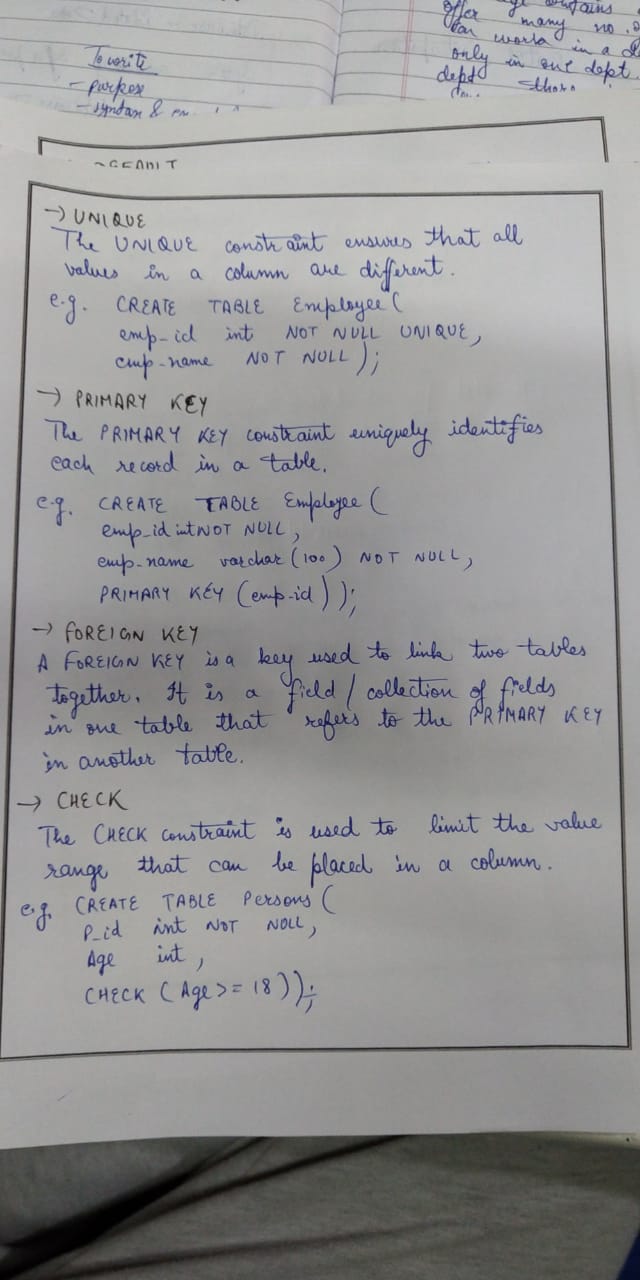 To write
- purpose
- syntax &
offer many no. of
can work in a
only in one dept.
dept
→ UNIQUE
The UNIQUE constraint ensures that all
values in a column are different.
e.g. CREATE TABLE Employee (
emp-id int NOT NULL UNIQUE,
emp-name NOT NULL );
→ PRIMARY KEY
The PRIMARY KEY constraint uniquely identifies
each record in a table.
e.g. CREATE TABLE Employee (
emp_id int NOT NULL,
emp-name varchar (100) NOT NULL,
PRIMARY KEY (emp-id) );
→ FOREIGN KEY
A FOREIGN KEY is a key used to link two tables
together. It is a field / collection of fields
in one table that refers to the PRIMARY KEY
in another table.
→ CHECK
The CHECK constraint is used to limit the value
range that can be placed in a column.
e.g. CREATE TABLE Persons (
P_id int NOT NULL,
Age int,
CHECK ( Age >= 18 ) );